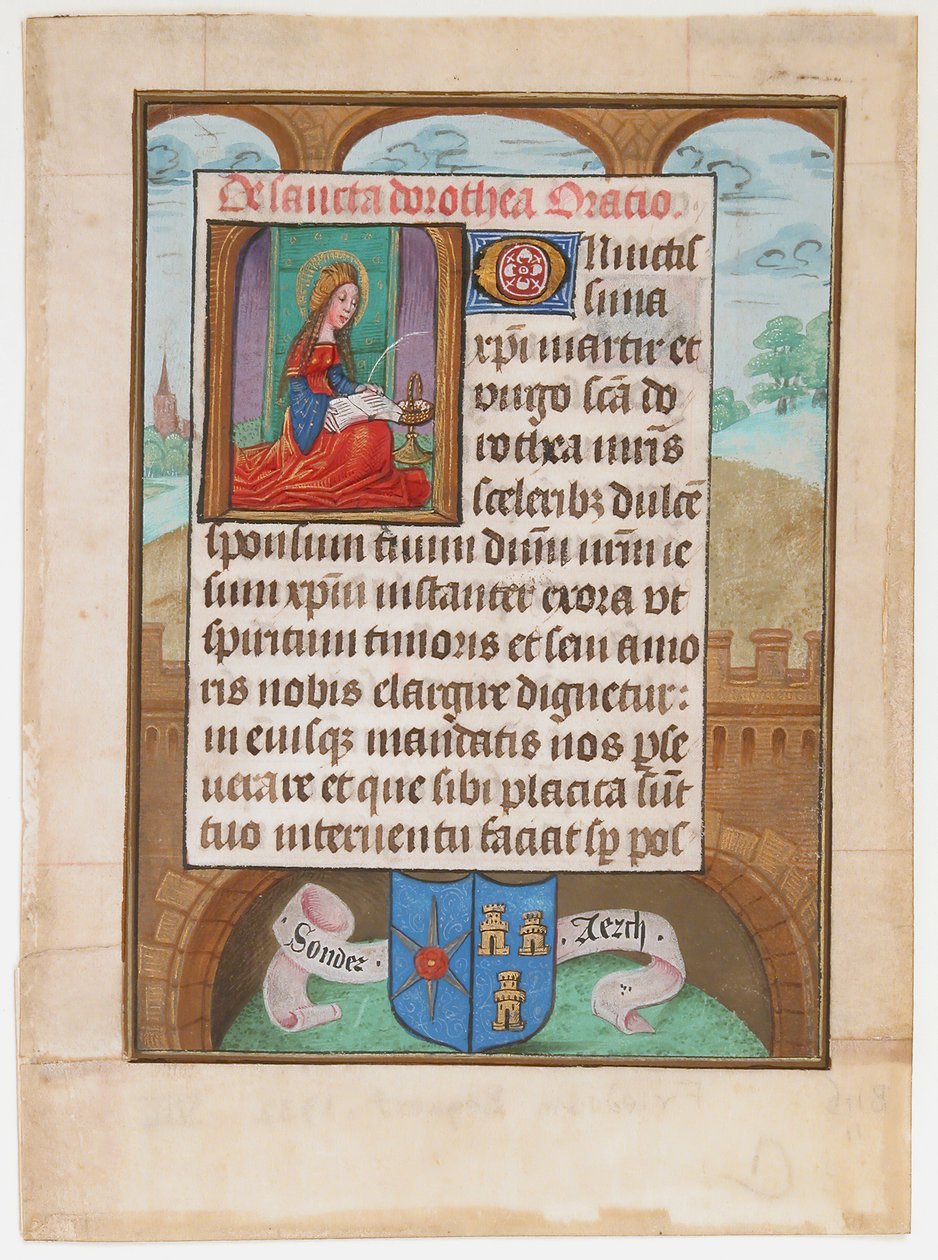 De sancta dorothea Oratio.
O Inuictis
sima
xp̄i martir et
virgo scā do
rothea nūris
sceleribꝫ dulcē
sponsum tuum dn̄m nr̄m ie
sum xp̄m instanter exora vt
spiritum timoris et sem amo
ris nobis elargire dignetur:
in eiusqꝫ mandatis nos ꝑse
uerare et que sibi placita sūt
tuo interuentu faciat sp̄ pos
· Sondez ·
· Aerch ·